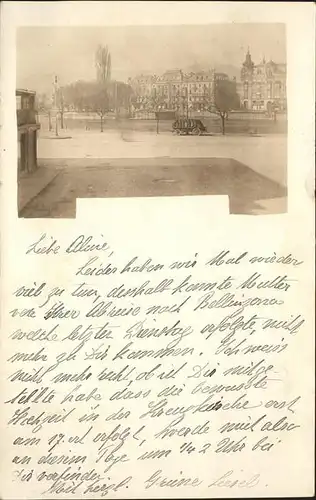 Liebe Alice,
Leider haben wir Mal wieder
viel zu tun, deshalb konnte Mutter
vor ihrer Abreise nach Bellinzona
welche letzten Dienstag erfolgte, nicht
mehr zu Dir kommen. Ich weiss
nicht mehr recht, ob ich Dir mitge-
teilt habe, dass die bewusste
Hochzeit in der Kreuzkirche erst
am 17. erfolgt, werde mich also
an diesem Tage um 1/2 2 Uhr bei
Dir vorfinden.
Mit herzl. Grüsse